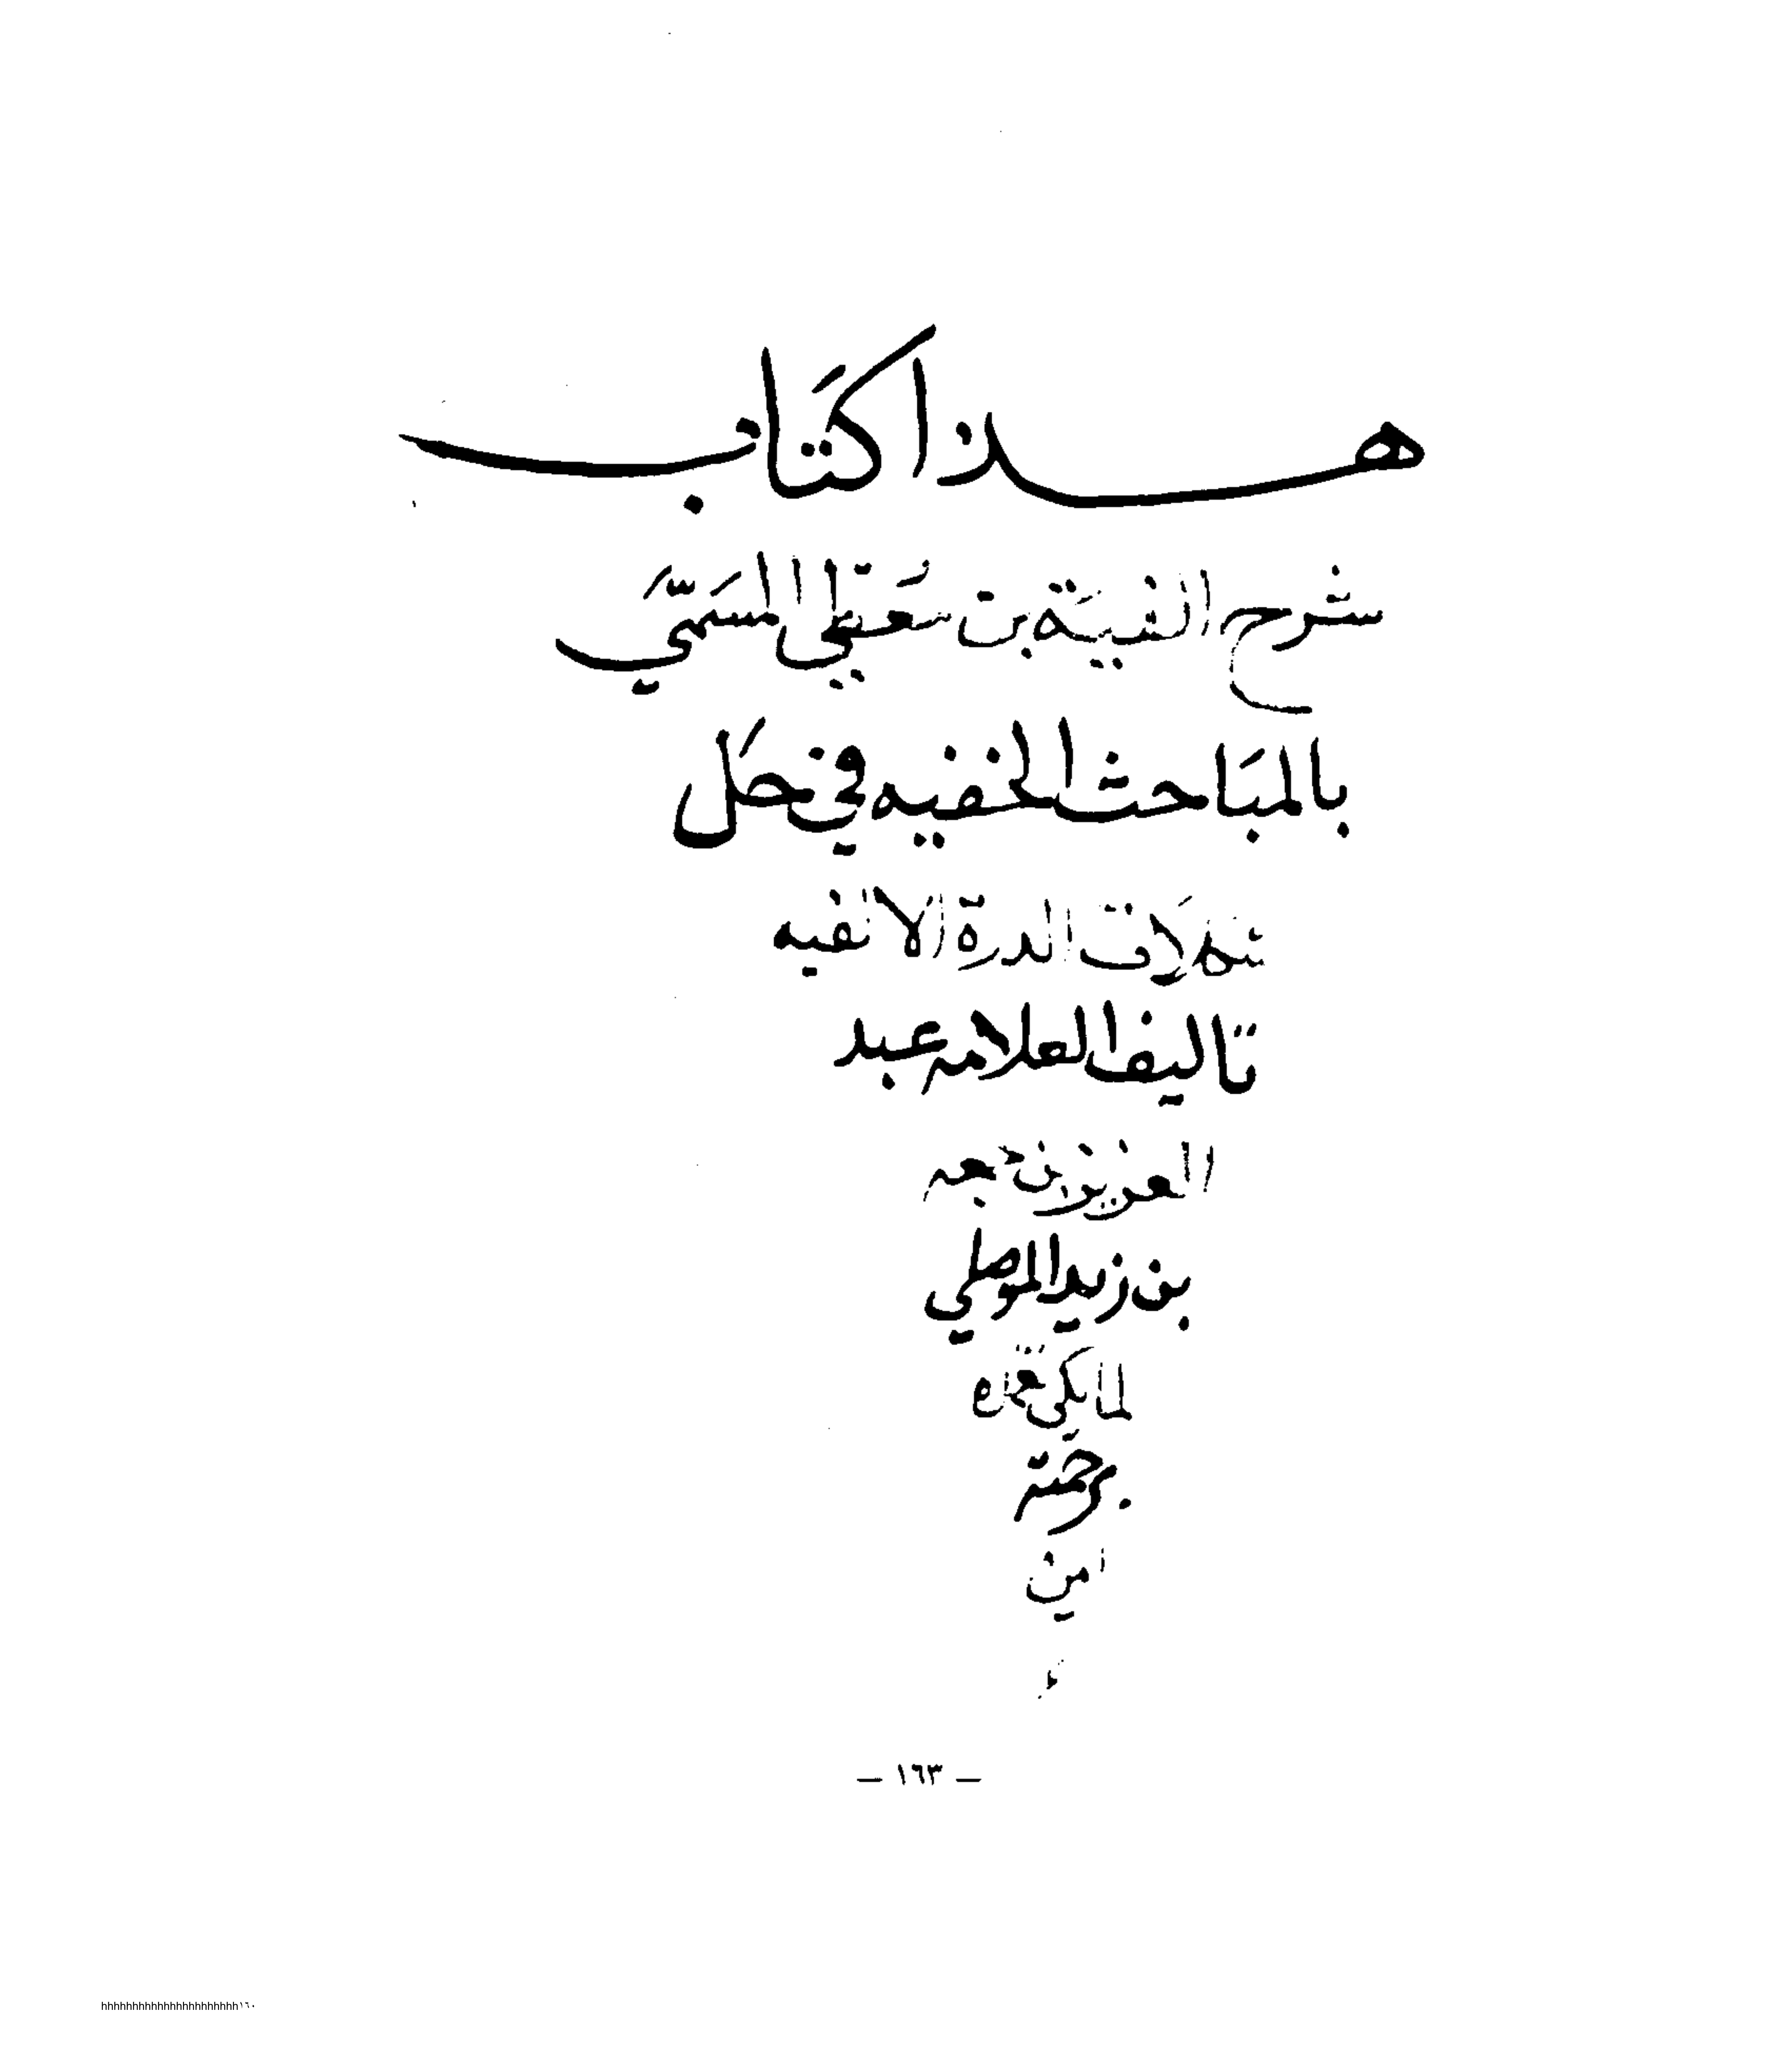 هذا كتاب
شرح الفية بن معطي المسمي
بالمباحث الخفيه في حل
مشكلات الدرة الالفيه
تاليف العلامه عبد
العزيز بن جمعه
بن زيد الموصلي
برحمته
امين
— ١٦٣ —
hhhhhhhhhhhhhhhhhhhhhh١٦٠